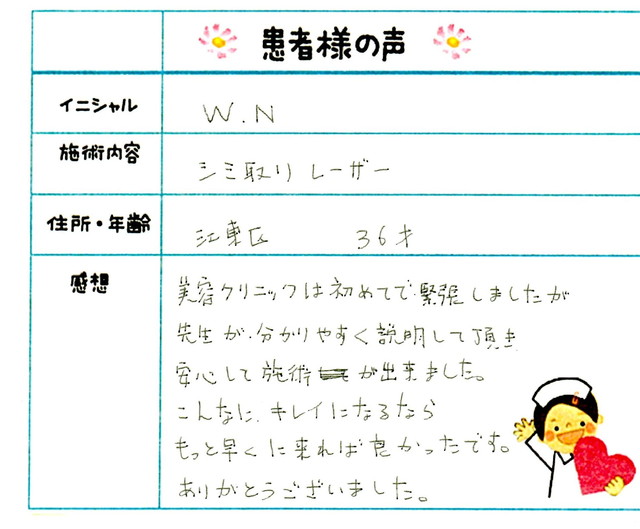 患者様の声
イニシャル W.N
施術内容 シミ取りレーザー
住所・年齢 江東区 36才
感想
美容クリニックは初めてで、緊張しましたが
先生が、分かりやすく説明して頂き
安心して施術が出来ました。
こんなに、キレイになるなら
もっと早くに来れば良かったです。
ありがとうございました。